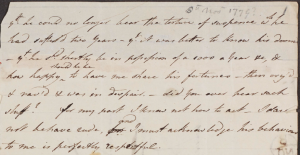 5th Novr 1779
yt he could no longer bear the torture of suspence wh he
had suffer'd two Years – yt it was better to know his doom
– yt he shd shortly be in possession of 2000 a year &c, &
how happy it would be to have me share his fortunes – then cry'd
& rav'd & was in despair – did you ever hear such
stuff! for my part I know not how to act – I dare
not behave rude, and I must acknowledge his behaviour
to me is perfectly respectful